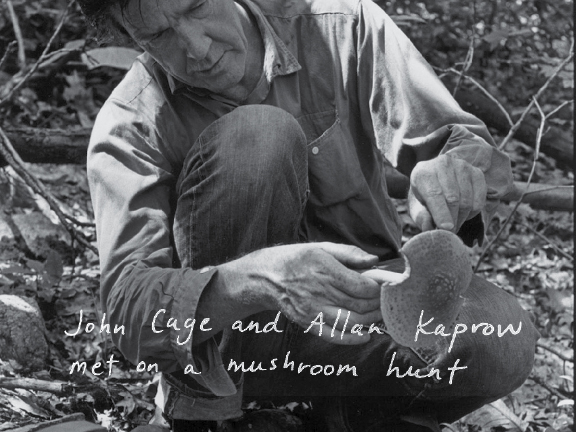 John Cage and Allan Kaprow
met on a mushroom hunt